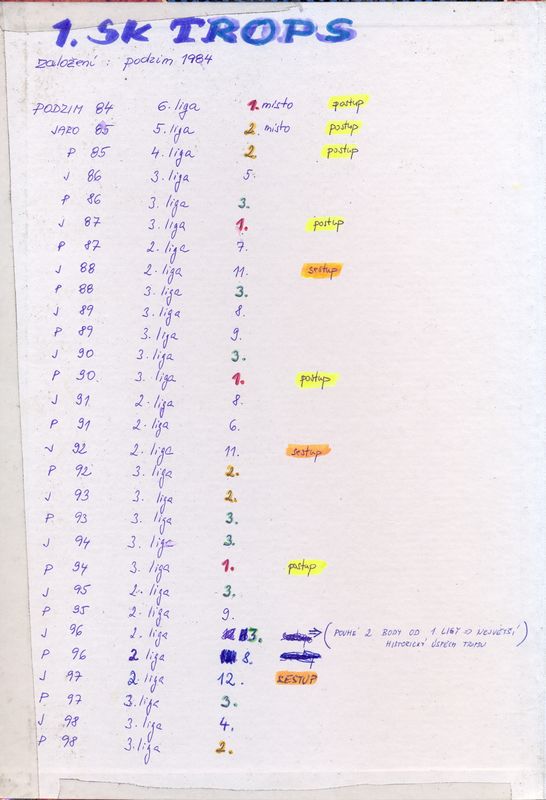 1. SK TROPS
založení : podzim 1984
PODZIM 84 6. liga 1. místo postup
JARO 85 5. liga 2. místo postup
P 85 4. liga 2 postup
J 86 3. liga 5.
P 86 3. liga 3.
J 87 3. liga 1. postup
P 87 2. liga 7.
J 88 2. liga 11. sestup
P 88 3. liga 3.
J 89 3. liga 8.
P 89 3. liga 9.
J 90 3. liga 3.
P 90. 3. liga 1. postup
J 91 2. liga 8.
P 91 2. liga 6.
J 92 2. liga 11. sestup
P 92 3. liga 2.
J 93 3. liga 2.
P 93 3. liga 3.
J 94 3. liga 3.
P 94 3. liga 1. postup
J 95 2. liga 3.
P 95 2. liga 9.
J 96 2. liga 3. ⇒ (POUHÉ 2 BODY OD 1. LIGY ⇒ NEJVĚTŠÍ
HISTORICKÝ ÚSPĚCH TROPSU)
P 96 2 liga 8.
J 97 2. liga 12. SESTUP
P 97 3. liga 3.
J 98 3. liga 4.
P 98 3. liga 2.